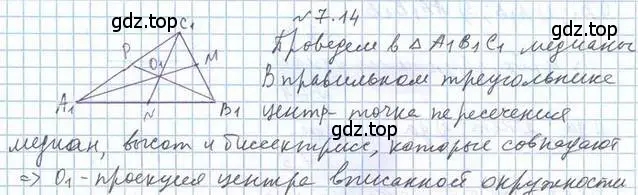 № 7.14
C₁
P
O₁
M
A₁
N
B₁
Проведем в △ A₁B₁C₁ медианы
В правильном треугольнике
центр - точка пересечения
медиан, высот и биссектрисс, которые совпадают
⇒ O₁ - проекция центра вписанной окружности